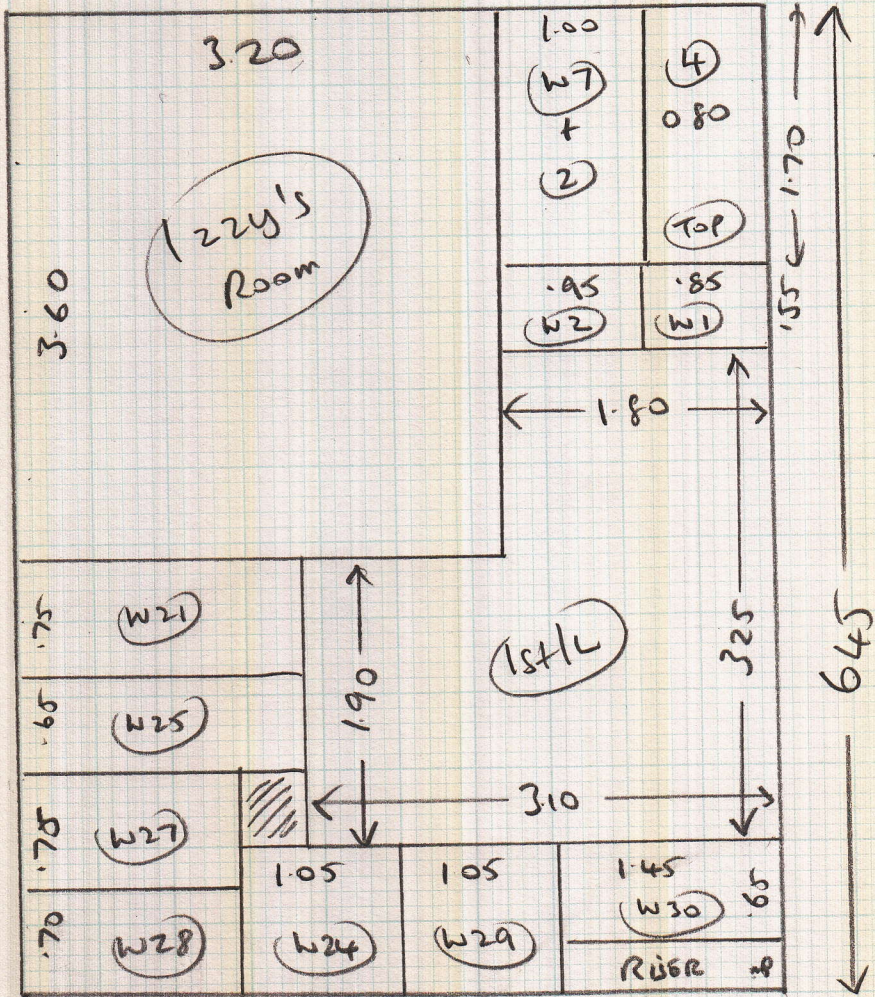 3.20
1.00
W7
+
2
4
0 80
TOP
1.70
Izzy's
Room
3.60
.95
W2
.85
W1
.55
1.80
.75
W21
1.90
1st/L
3.25
645
.65
W25
3.10
.75
W27
1.05
W24
1.05
W29
1.45
W30
.65
.70
W28
RISER